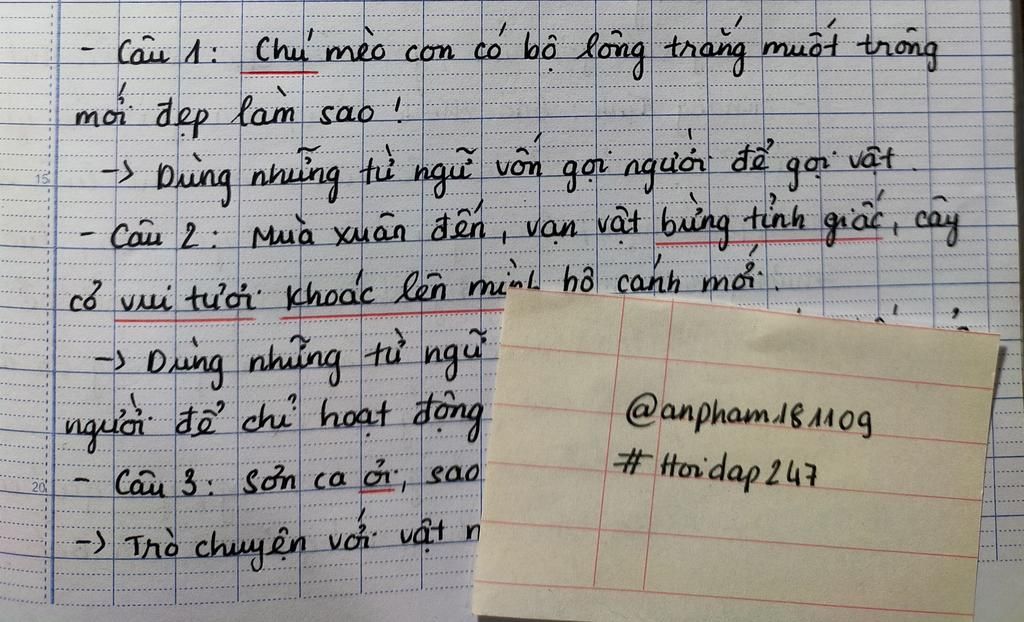 - Câu 1: Chú mèo con có bộ lông trắng muốt trông
mới đẹp làm sao!
-> Dùng những từ ngữ vốn gọi người để gọi vật.
- Câu 2: Mùa xuân đến, vạn vật bừng tỉnh giấc, cây
cỏ vui tươi khoác lên mình bộ cánh mới.
-> Dùng những từ ngữ
người để chỉ hoạt động
- Câu 3: Sơn ca ơi, sao
-> Trò chuyện với vật
@anpham181109
# Hoidap247
15
20